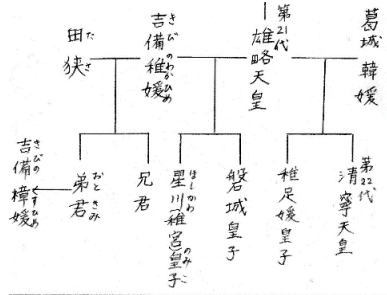 葛城韓媛
第21代
雄略天皇
吉備稚媛
きびのわかひめ
田狭
たさ
第22代
清寧天皇
稚足媛皇子
磐城皇子
星川稚宮皇子
ほしかわ のみこ
兄君
弟君
おときみ
吉備樟媛
きびのくすひめ